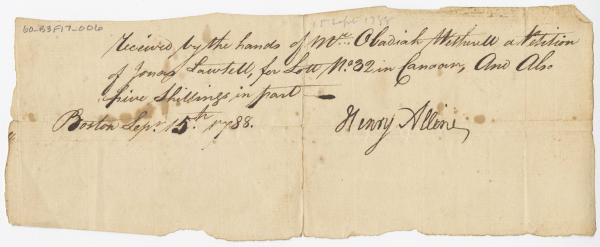 60-B3F17-006
15 Sept 1788
Received by the hands of Mr. Obadiah Witherell a Petition
of Jonas Sawtell, for Lott No 32 in Canaan, And Also
five Shillings in part
Boston Sepr. 15th 1788.
Henry Alline